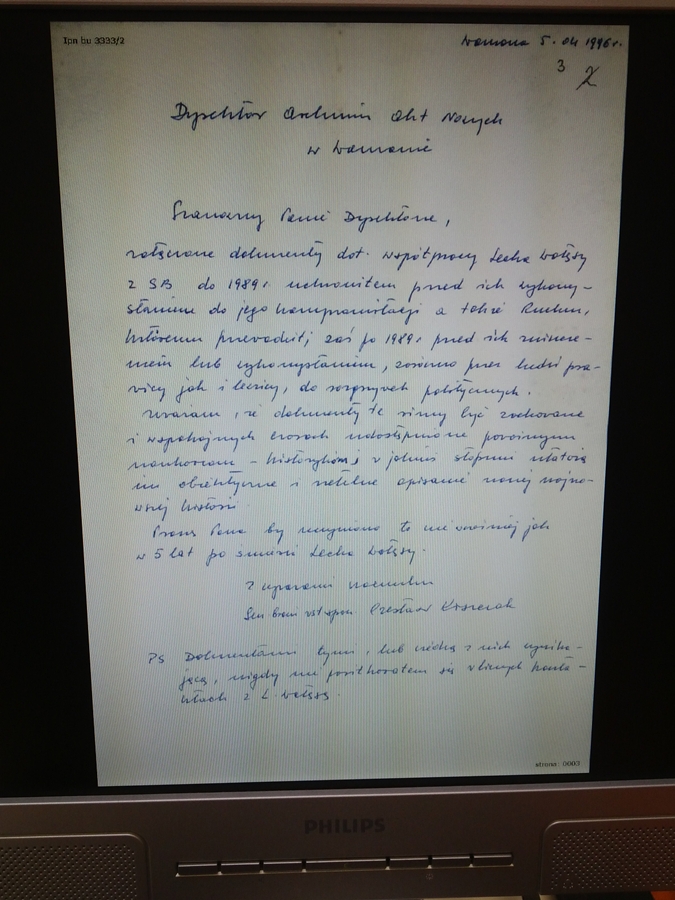 Ipn bu 3333/2
Warszawa 5.04 1996 r.
3 2
Dyrektor Archiwum Akt Nowych
w Warszawie
Szanowny Panie Dyrektorze,
załączone dokumenty dot. współpracy Lecha Wałęsy
z SB do 1989 r. uchroniłem przed ich wykorzy-
staniem do jego kompromitacji a także Ruchu,
któremu przewodził; zaś po 1989 r. przed ich zniszcze-
niem lub wykorzystaniem, zarówno przez ludzi pra-
wicy jak i lewicy, do rozgrywek politycznych.
Uważam, że dokumenty te winny być zachowane
i w spokojnych czasach udostępnione poważnym
naukowcom - historykom i w jakimś stopniu ułatwią
im obiektywne i rzetelne opisanie naszej najno-
wszej historii.
Proszę Pana by uczyniono to nie wcześniej jak
w 5 lat po śmierci Lecha Wałęsy.
Z wyrazami szacunku
Gen. broni w st. spocz. Czesław Kiszczak
PS Dokumentami tymi, lub wiedzą z nich wynika-
jącą, nigdy nie posiłkowałem się w licznych konta-
ktach z L. Wałęsą.
strona: 0003
PHILIPS